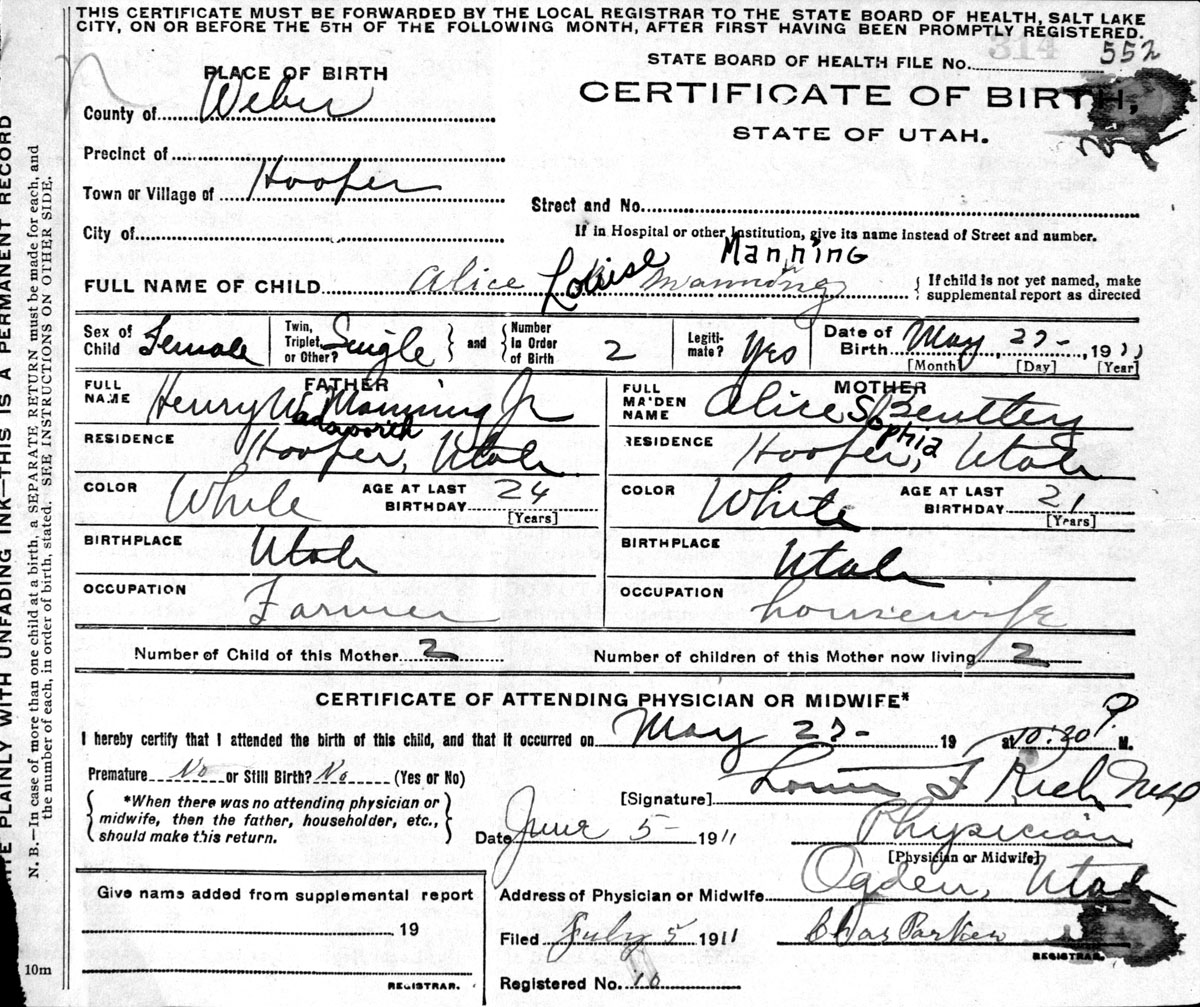 THIS CERTIFICATE MUST BE FORWARDED BY THE LOCAL REGISTRAR TO THE STATE BOARD OF HEALTH, SALT LAKE
CITY, ON OR BEFORE THE 5TH OF THE FOLLOWING MONTH, AFTER FIRST HAVING BEEN PROMPTLY REGISTERED.
314
STATE BOARD OF HEALTH FILE No. 552
PLACE OF BIRTH
CERTIFICATE OF BIRTH,
County of Weber
STATE OF UTAH.
Precinct of
Town or Village of Hooper
Street and No.
City of
If in Hospital or other Institution, give its name instead of Street and number.
Manning
FULL NAME OF CHILD Alice Louise Manning { If child is not yet named, make
supplemental report as directed
Sex of Child Female
Twin, Triplet, or Other? Single } and { Number In Order of Birth 2
Legiti-mate? Yes
Date of Birth May 27-, 1911
[Month] [Day] [Year]
FATHER
FULL NAME Henry W. Manning Jr
adsworth
RESIDENCE Hooper, Utah
COLOR White AGE AT LAST BIRTHDAY 24
[Years]
BIRTHPLACE Utah
OCCUPATION Farmer
MOTHER
FULL MAIDEN NAME Alice S. Beuttey
ophia
RESIDENCE Hooper, Utah
COLOR White AGE AT LAST BIRTHDAY 21
[Years]
BIRTHPLACE Utah
OCCUPATION housewife
Number of Child of this Mother 2 Number of children of this Mother now living 2
CERTIFICATE OF ATTENDING PHYSICIAN OR MIDWIFE*
I hereby certify that I attended the birth of this child, and that it occurred on May 27- 19 at 10:20 P. M.
Premature No or Still Birth? No (Yes or No)
{ *When there was no attending physician or
midwife, then the father, householder, etc.,
should make this return. }
[Signature] Rich
Date June 5- 1911 Physician
[Physician or Midwife]
Address of Physician or Midwife Ogden, Utah
Filed July 5 1911 Chas Parker
REGISTRAR.
Registered No. 10
Give name added from supplemental report
, 19
REGISTRAR.
10m
PLAINLY WITH UNFADING INK—THIS IS A PERMANENT RECORD
N. B.—In case of more than one child at a birth, a SEPARATE RETURN must be made for each, and
the number of each, in order of birth, stated. SEE INSTRUCTIONS ON OTHER SIDE.